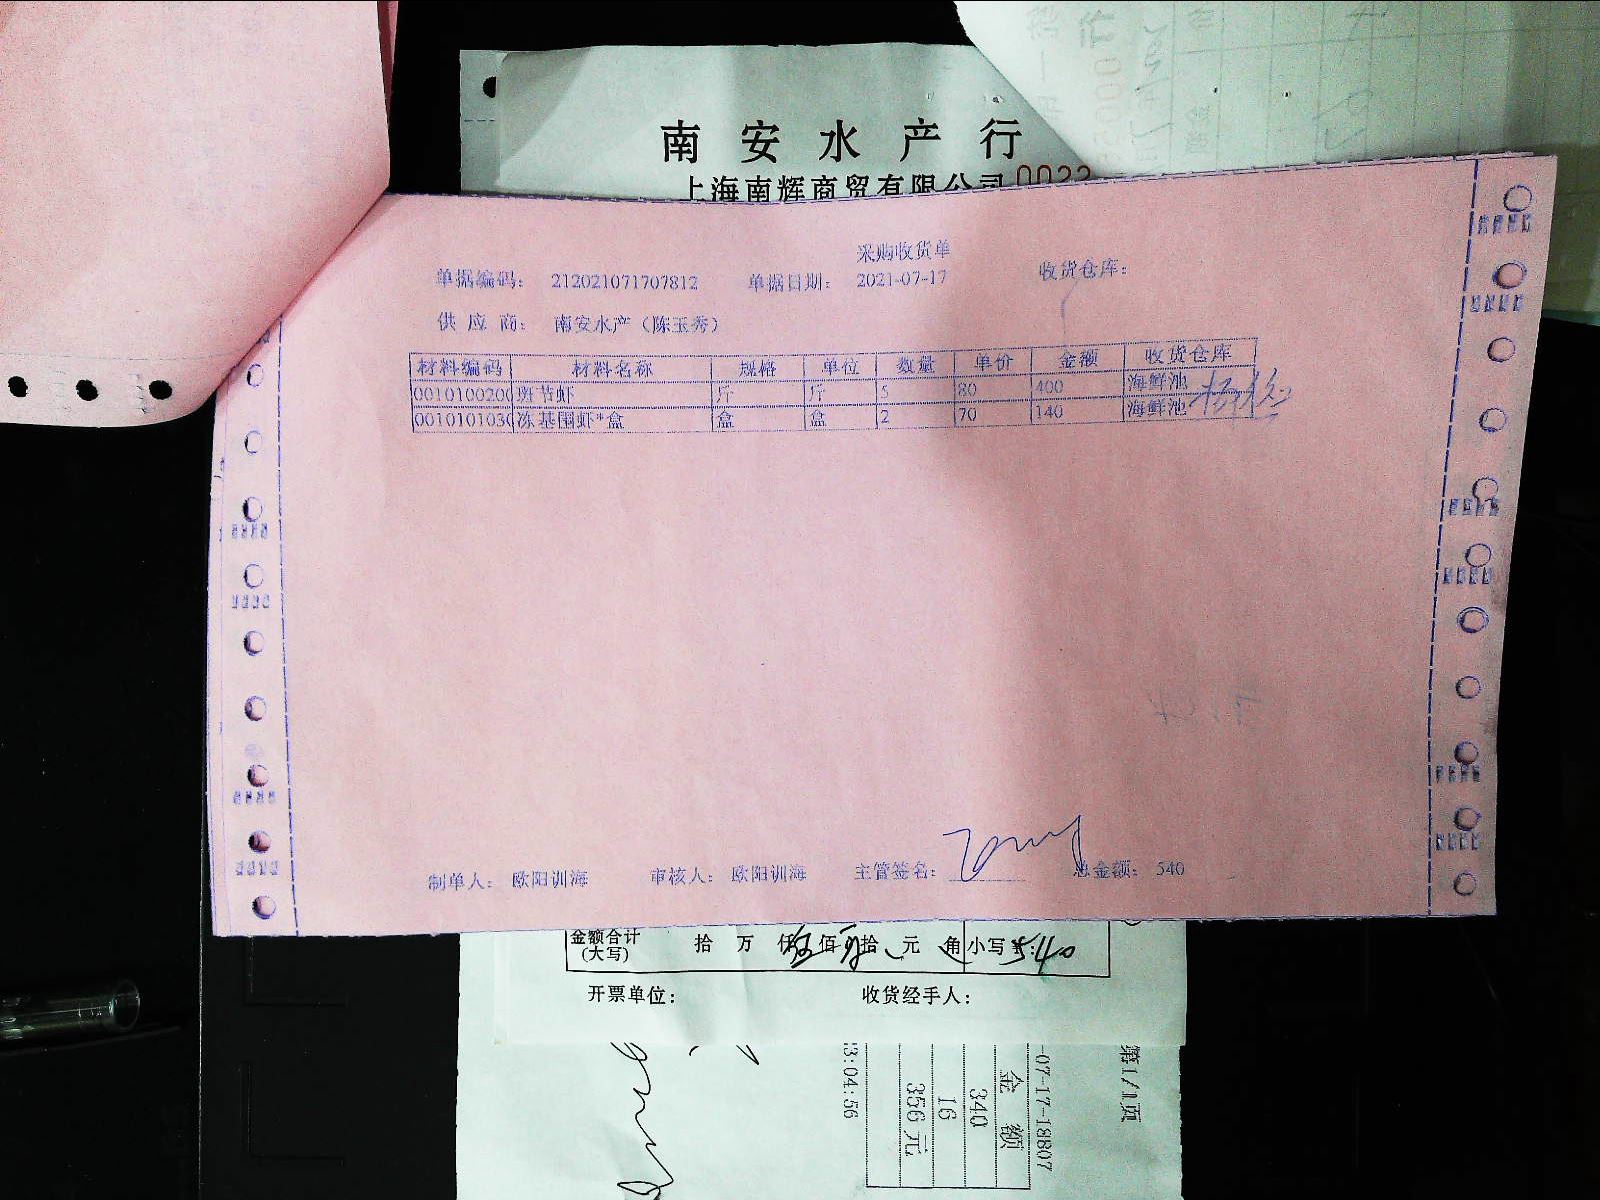 南安水产行
上海南辉商贸有限公司 0022
采购收货单
单据编码： 212021071707812 单据日期： 2021-07-17 收货仓库：
供应商： 南安水产（陈玉秀）
材料编码 材料名称 规格 单位 数量 单价 金额 收货仓库
0010100200 斑节虾 斤 斤 5 80 400 海鲜池
0010101030 冻基围虾*盒 盒 盒 2 70 140 海鲜池
制单人： 欧阳训海 审核人： 欧阳训海 主管签名： 总金额： 540
金额合计(大写) 拾 万 仟 伍 佰 肆 拾 元 角 小写￥: 540
开票单位： 收货经手人：
第1/1页
-07-17-18807
金额
340
16
356元
3:04:56